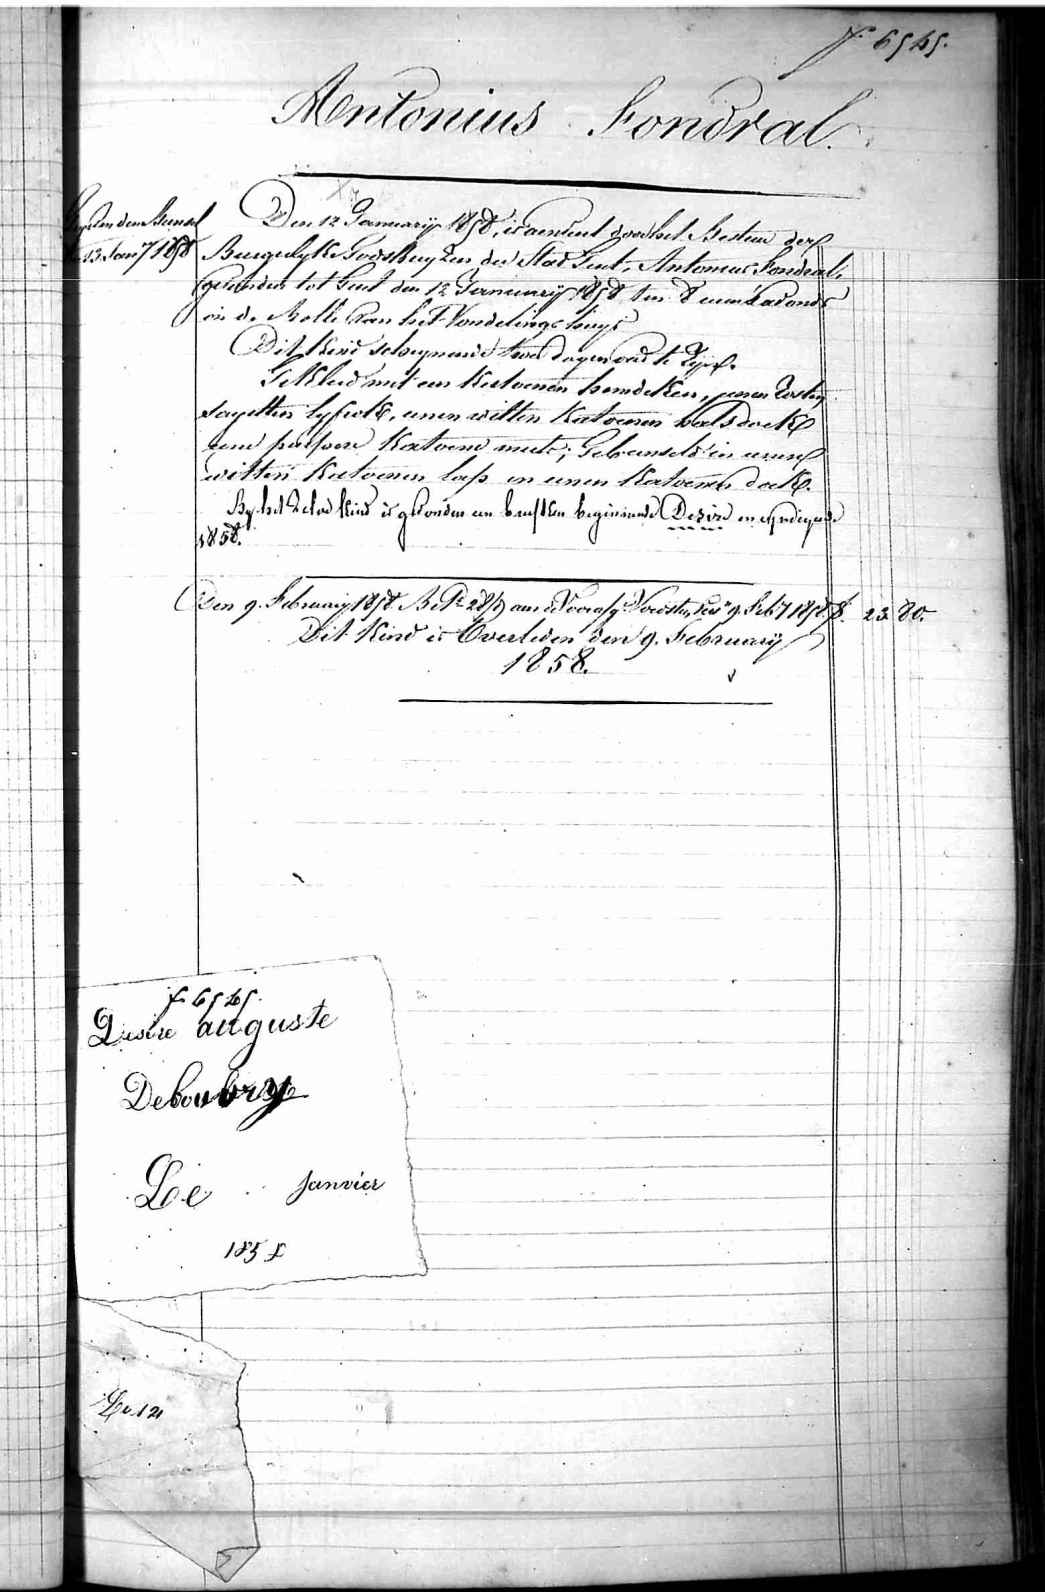 f. 6545.
Antonius Fondral.
13 Jan 7 1858
Den 12 January 1858, is aenveert door het Bestuer der
Burgerlyke Godshuyzen der Stad Gent, Antonius Fondral,
gevonden tot Gent den 12 January 1858 ten 8 uren s'avonds
in de Rolle van het Vondelingshuys
Dit kind schynende twee dagen oud te zyn.
Gekleed met een katoenen hemdeken, eenen
sayetten lyfrok, eenen witten katoenen halsdoek
eene purpere katoene muts; Gebunseld in eenen
witten katoenen lap en eenen katoenen doek.
By het zelve kind is gevonden een briefken beginnende Desiré en eyndigende
1858.
Den 9. February 1858. Bet. aen de 9. Feb 7 1858. f. 23 80.
Dit kind is Overleden den 9. February
1858.
f 6545.
Desire auguste
Deboubry
Le janvier
1858
Le 12